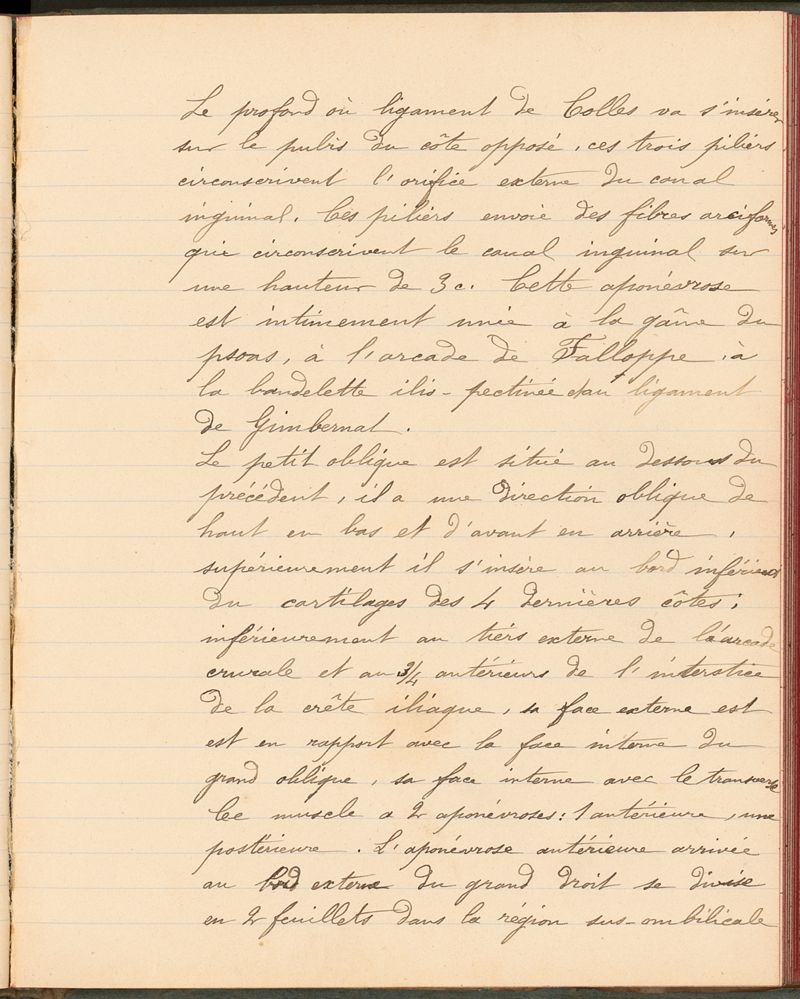 Le profond où ligament de Colles va s'insérer
sur le pubis du côte opposé, ces trois piliers
circonscrivent l'orifice externe du canal
inguinal. Ces piliers envoie des fibres arciformes
qui circonscrivent le canal inguinal sur
une hauteur de 3c. Cette aponévrose
est intimement unie à la gaîne du
psoas, à l'arcade de Falloppe, à
la bandelette ilio-pectinée et au ligament
de Gimbernat.
Le petit oblique est situé au dessous du
précédent, il a une direction oblique de
haut en bas et d'avant en arrière,
supérieurement il s'insère au bord inférieur
du cartilages des 4 dernières côtes;
inférieurement au tiers externe de l'arcade
crurale et au 3/4 antérieurs de l'interstice
de la crête iliaque, sa face externe est
est en rapport avec la face interne du
grand oblique, sa face interne avec le transverse
Ce muscle a 2 aponévroses: 1 antérieure, une
postérieure. L'aponévrose antérieure arrivée
au bord externe du grand droit se divise
en 2 feuillets dans la région sus-ombilicale